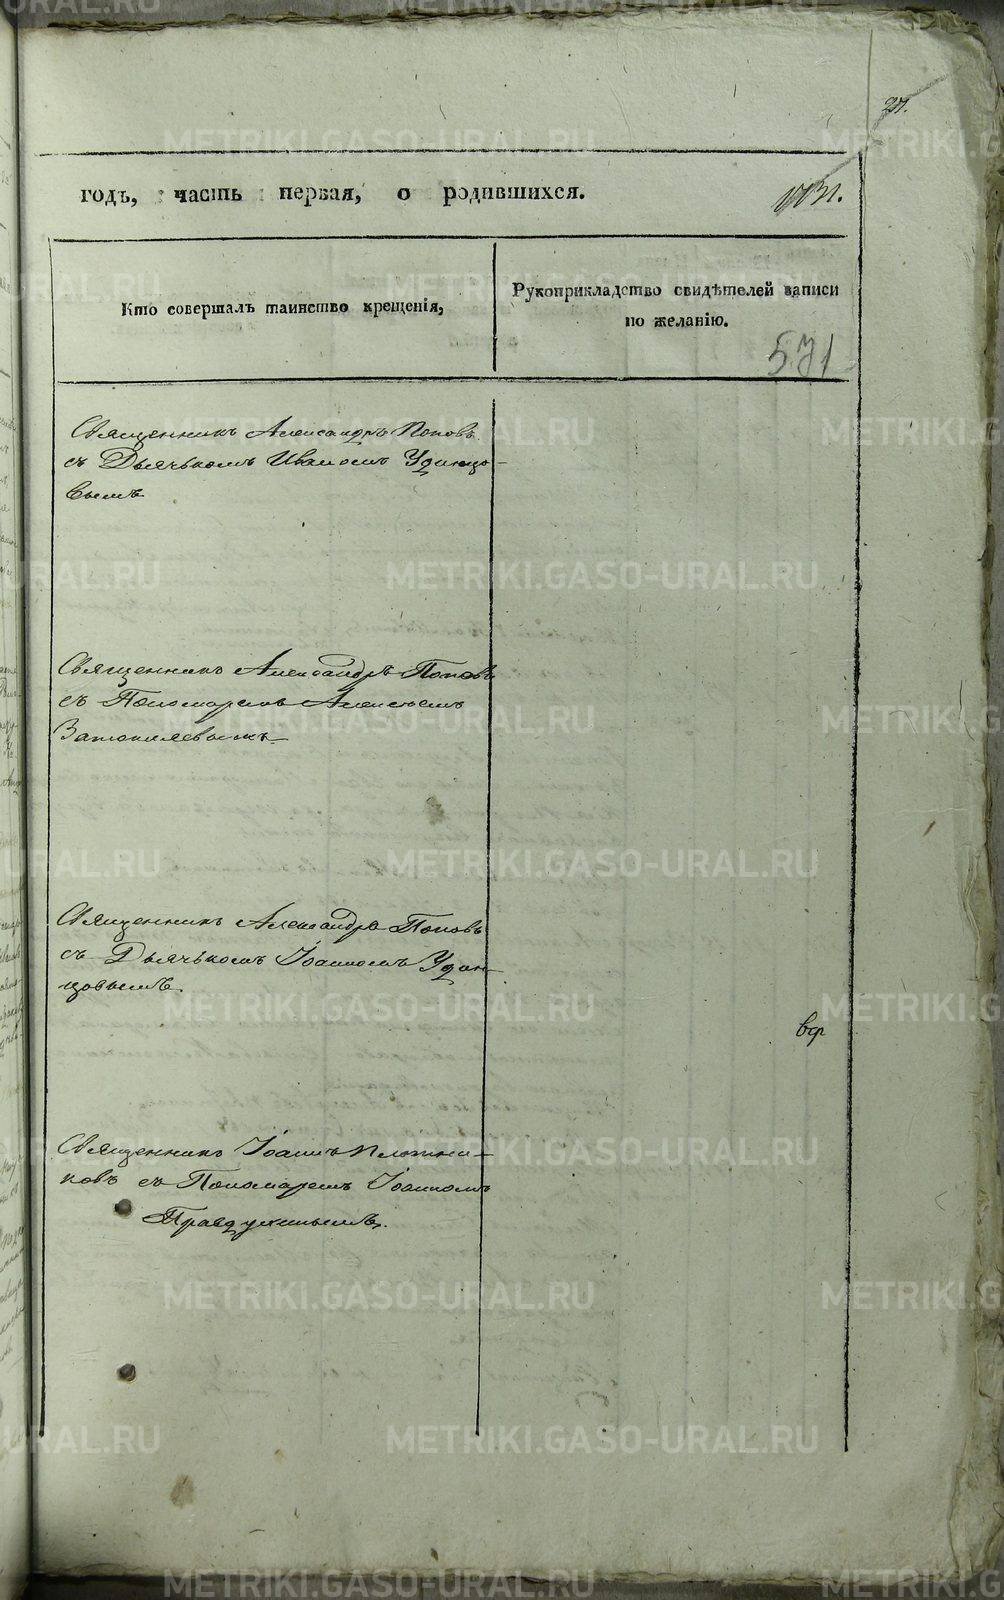 годъ, часть первая, о родившихся.
Кто совершалъ таинство крещенія,
Рукоприкладство свидѣтелей записи
по желанію.
571
Священникъ Александръ Поповъ
съ Дьячькомъ Иваномъ Удинцо-
вымъ
Священникъ Александръ Поповъ
съ Пономаремъ Алексѣемъ
Священникъ Александръ Поповъ
съ Дьячькомъ Іоанномъ Удин-
цовымъ.
Священникъ Іоаннъ Плотни-
ковъ съ Пономаремъ Іоанномъ
METRIKI.GASO-URAL.RU